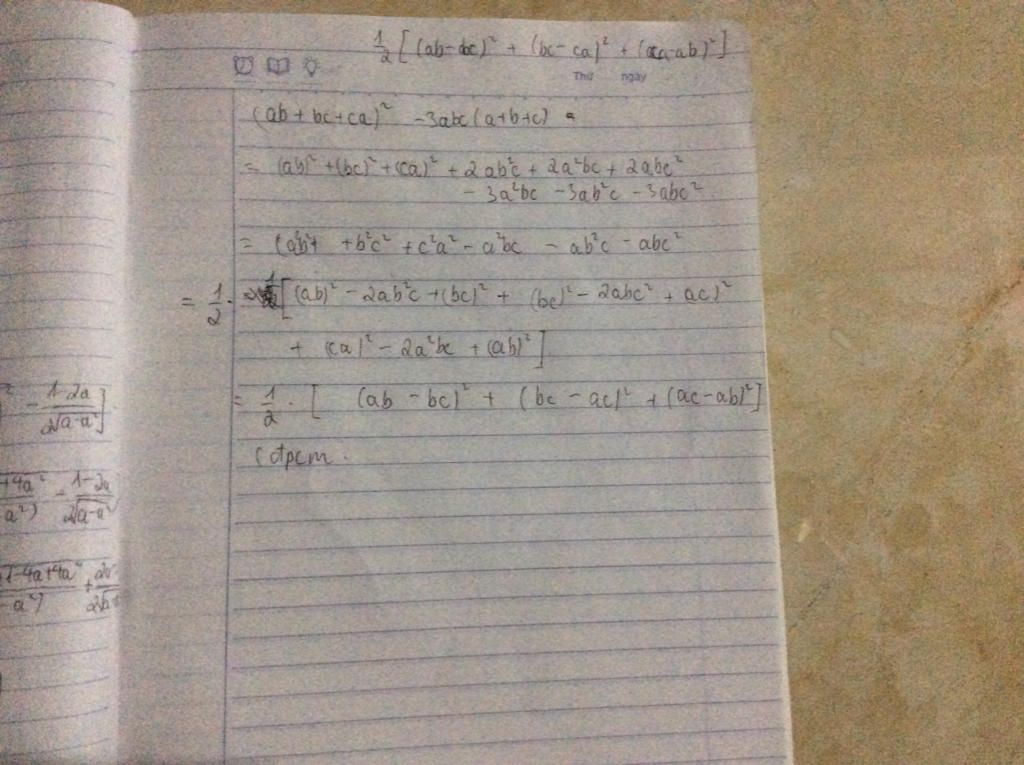 1/2 [ (ab-bc)² + (bc-ca)² + (ca-ab)² ]
Thứ ngày
(ab + bc + ca)² - 3abc (a+b+c)
= (ab)² + (bc)² + (ca)² + 2ab²c + 2a²bc + 2abc²
- 3a²bc - 3ab²c - 3abc²
= (a²b² + + b²c² + c²a² - a²bc - ab²c - abc²
= 1/2 . [ (ab)² - 2ab²c + (bc)² + (bc)² - 2abc² + ac)²
+ (ca)² - 2a²bc + (ab)² ]
= 1/2 . [ (ab - bc)² + (bc - ac)² + (ac - ab)² ]
(đpcm .
² - 1-2a / 2√a-a² ]
+4a² / a²) - 1-2a / 2√a-a²
1-4a+4a² / -a²) +